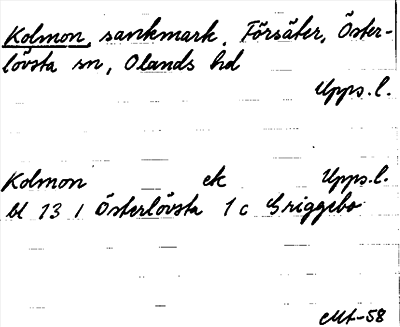 Kolmon, sankmark, Försäter, Öster-
lövsta sn, Olands hd
Upps.l.
Kolmon ek Upps.l.
bl 13 I Österlövsta 1 c Griggebo
-58